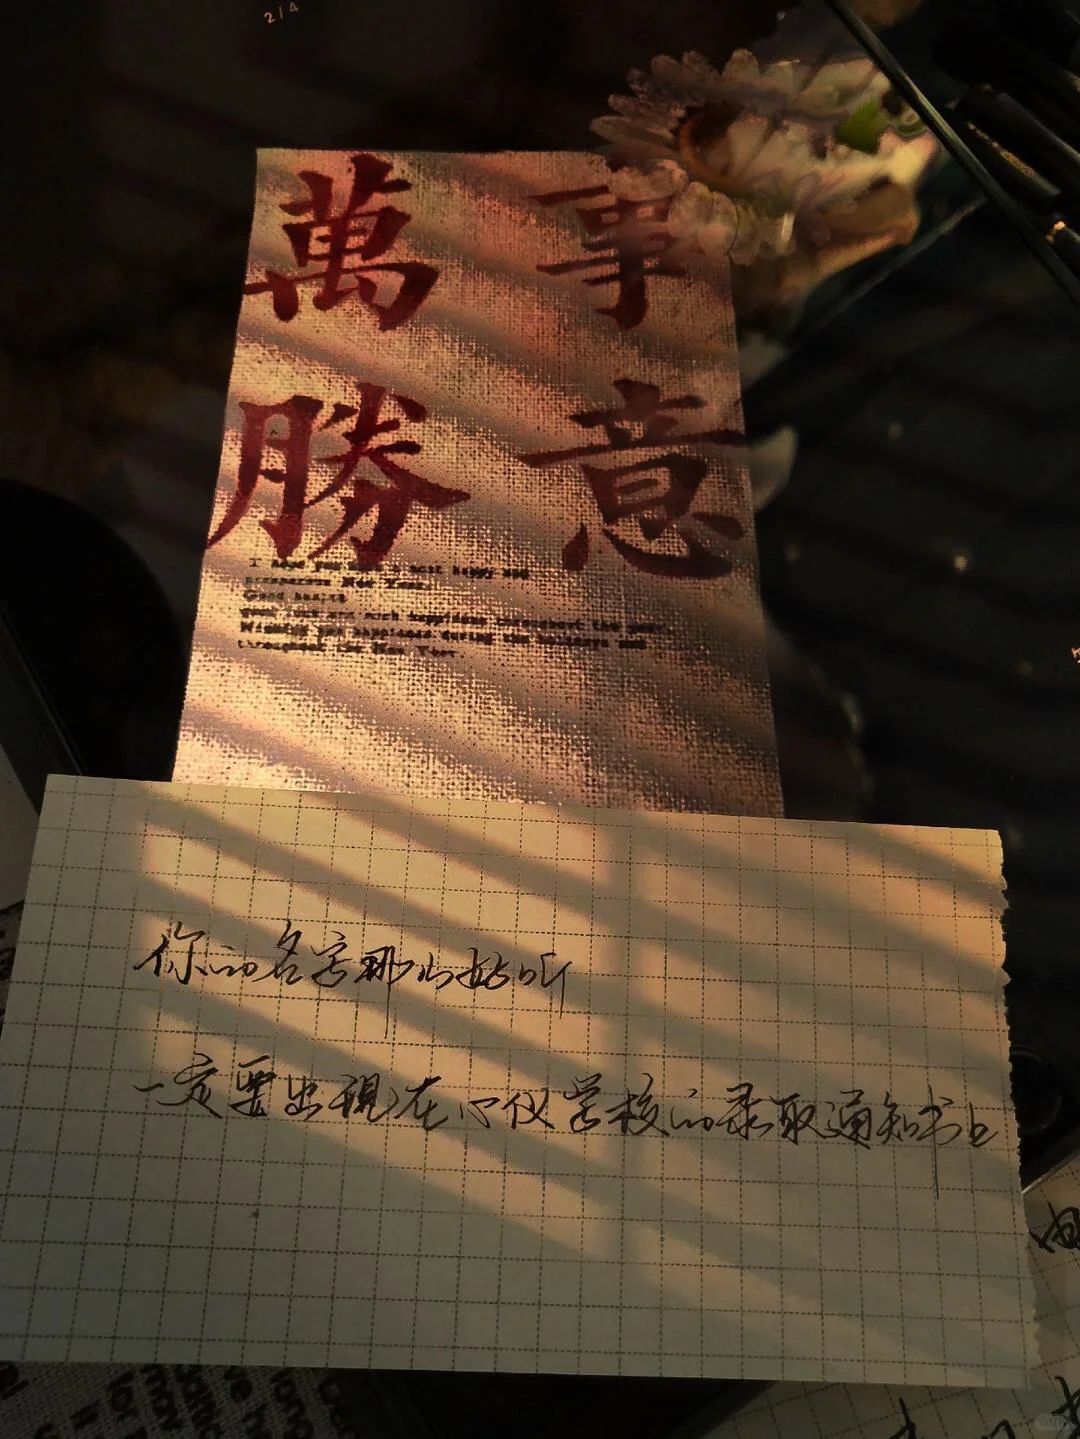 2/4
萬事
勝意
prosperous New Year.
Good health
good luck and much happiness throughout the year.
Wishing you happiness during the holidays and
throughout the New Year.
你的名字那么好听
一定要出現在心仪学校的录取通知书上